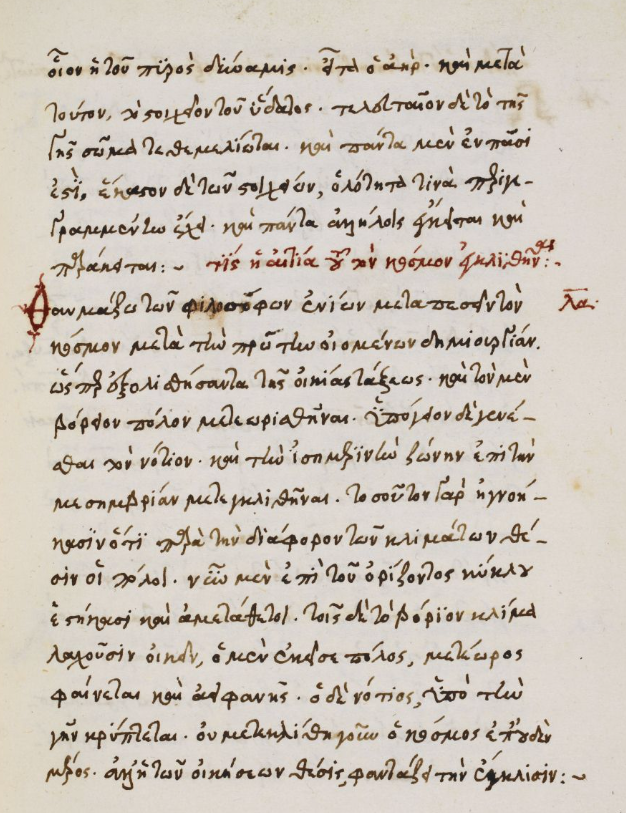 οἷον ἡ τοῦ πυρὸς δύναμις. εἶτα ὁ ἀήρ. καὶ μετὰ
τοῦτον, τὸ στοιχεῖον τοῦ ὕδατος. τελευταῖον δὲ τὸ τῆς
γῆς σῶμα τεθεμελίωται. καὶ πάντα μὲν ἐν πᾶσί
ἐστι, ἕκαστον δὲ τῶν στοιχείων, ὁλότητα τινὰ περιγε-
γραμμένην ἔχει. καὶ πάντα ἀλλήλοις καὶ
τίς ἡ αἰτία τὸν κόσμον ἐγκλιθῆναι:
Θαυμάζω τῶν φιλοσόφων ἐνίων μεταπεσεῖν τὸν λα
κόσμον μετὰ τὴν πρώτην οἰομένων δημιουργίαν.
ὥσπερ ἐξολισθήσαντα τῆς οἰκείας τάξεως. καὶ τὸν μὲν
βόρειον πόλον μετεωρισθῆναι. ὑπόγειον δὲ γενέ-
σθαι τὸν νότιον. καὶ τὴν ἰσημερινὴν ζώνην ἐπὶ τὴν
μεσημβρίαν μετεγκλιθῆναι. τοσοῦτον γὰρ ἠγνοή-
κασιν ὅτι παρὰ τὴν διάφορον τῶν κλιμάτων θέ-
σιν οἱ πόλοι. νεύω μὲν ἐπὶ τοῦ ὁρίζοντος κύκλου
ἑστήκασι καὶ ἀμετάθετοι. τοῖς δὲ τὸ βόριον κλίμα
λαχοῦσιν οἰκεῖν, ὁ μὲν ἐκεῖσε πόλος, μετέωρος
φαίνεται καὶ ἀειφανής. ὁ δὲ νότιος, ὑπὸ τὴν
γῆν κρύπτεται. οὐ μετεκλίθη γοῦν ὁ κόσμος ἐπ' οὐδὲν
μέρος. ἀλλ' ἡ τῶν οἰκήσεων θέσις, φαντάζει τὴν ἔγκλισιν: